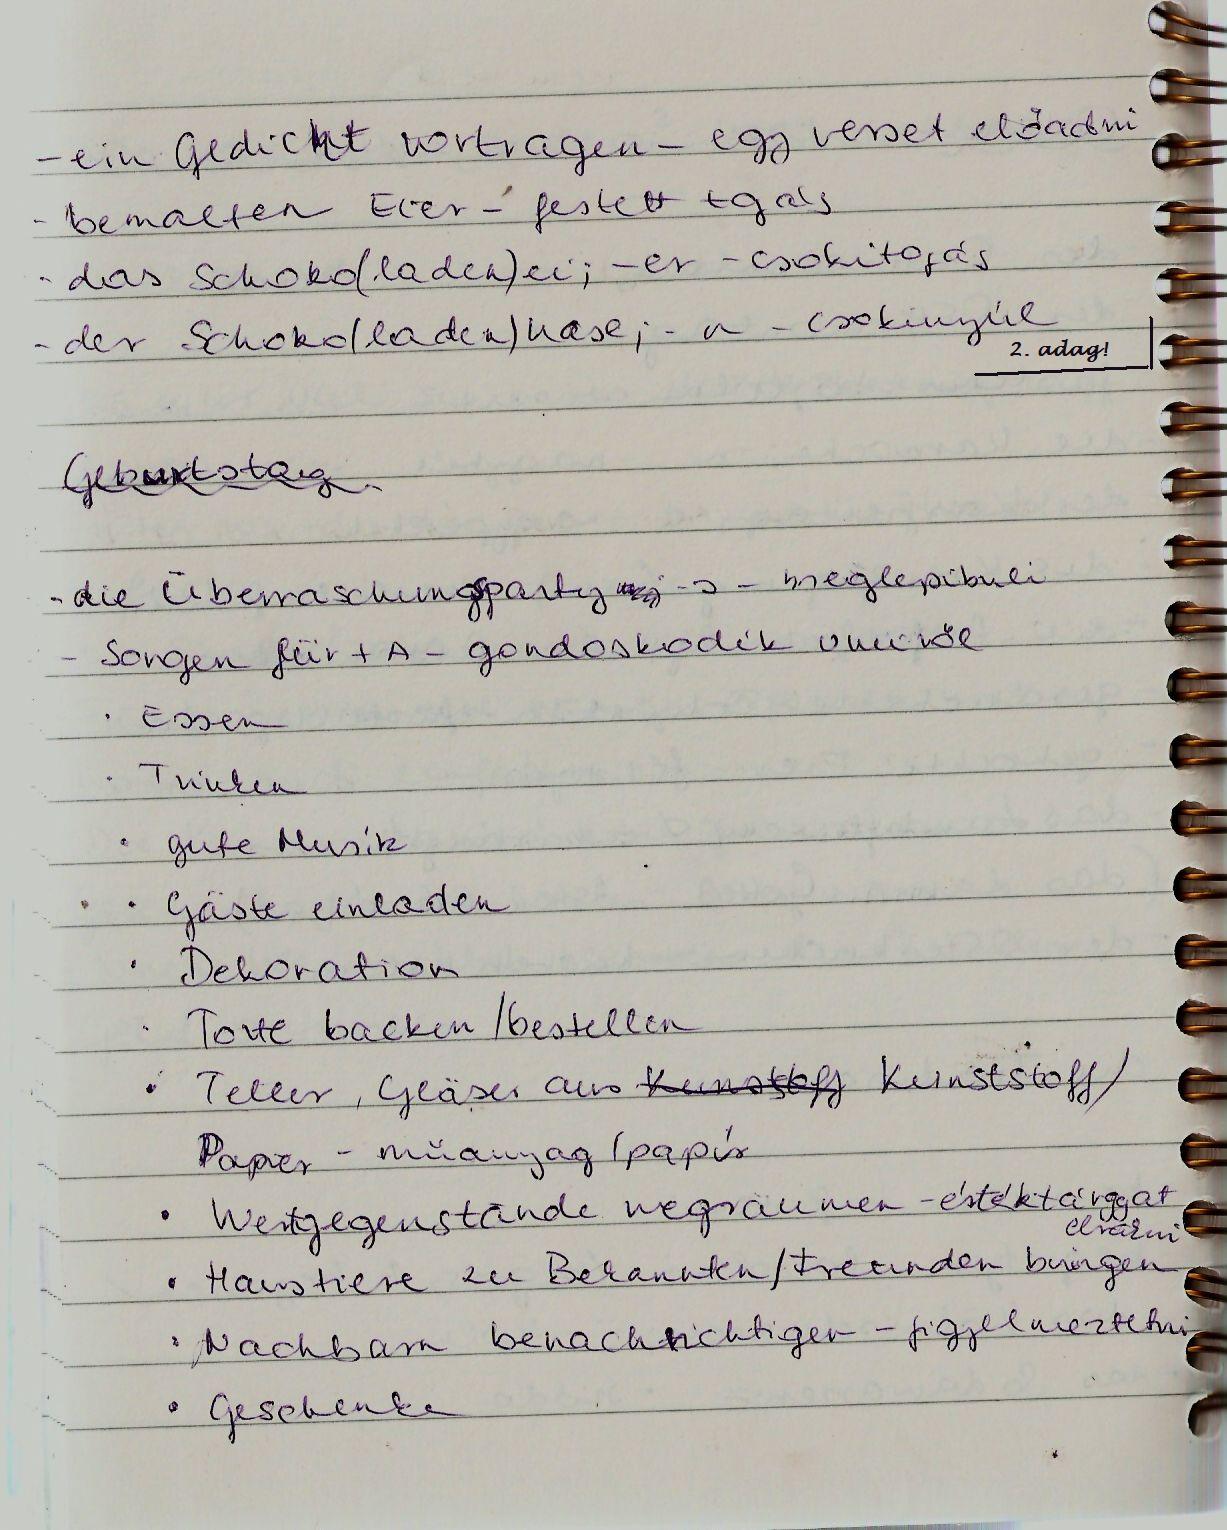 - ein Gedicht vortragen - egy verset előadni
- bemalten Eier - festett tojás
- das Schoko(laden)ei; -er - csokitojás
- der Schoko(laden)hase; -n - csokinyúl
2. adag!
Geburtstag
- die Überraschungsparty; -s - meglepibuli
- Sorgen für + A - gondoskodik vmiről
· Essen
· Trinken
· gute Musik
· Gäste einladen
· Dekoration
· Torte backen / bestellen
· Teller, Gläser aus Kunststoff Kunststoff /
Papier - műanyag / papír
· Wertgegenstände wegräumen - értéktárgyat
elrázni
· Haustiere zu Bekannten / Freunden bringen
· Nachbarn benachrichtigen - figyelmeztetni
· Geschenke